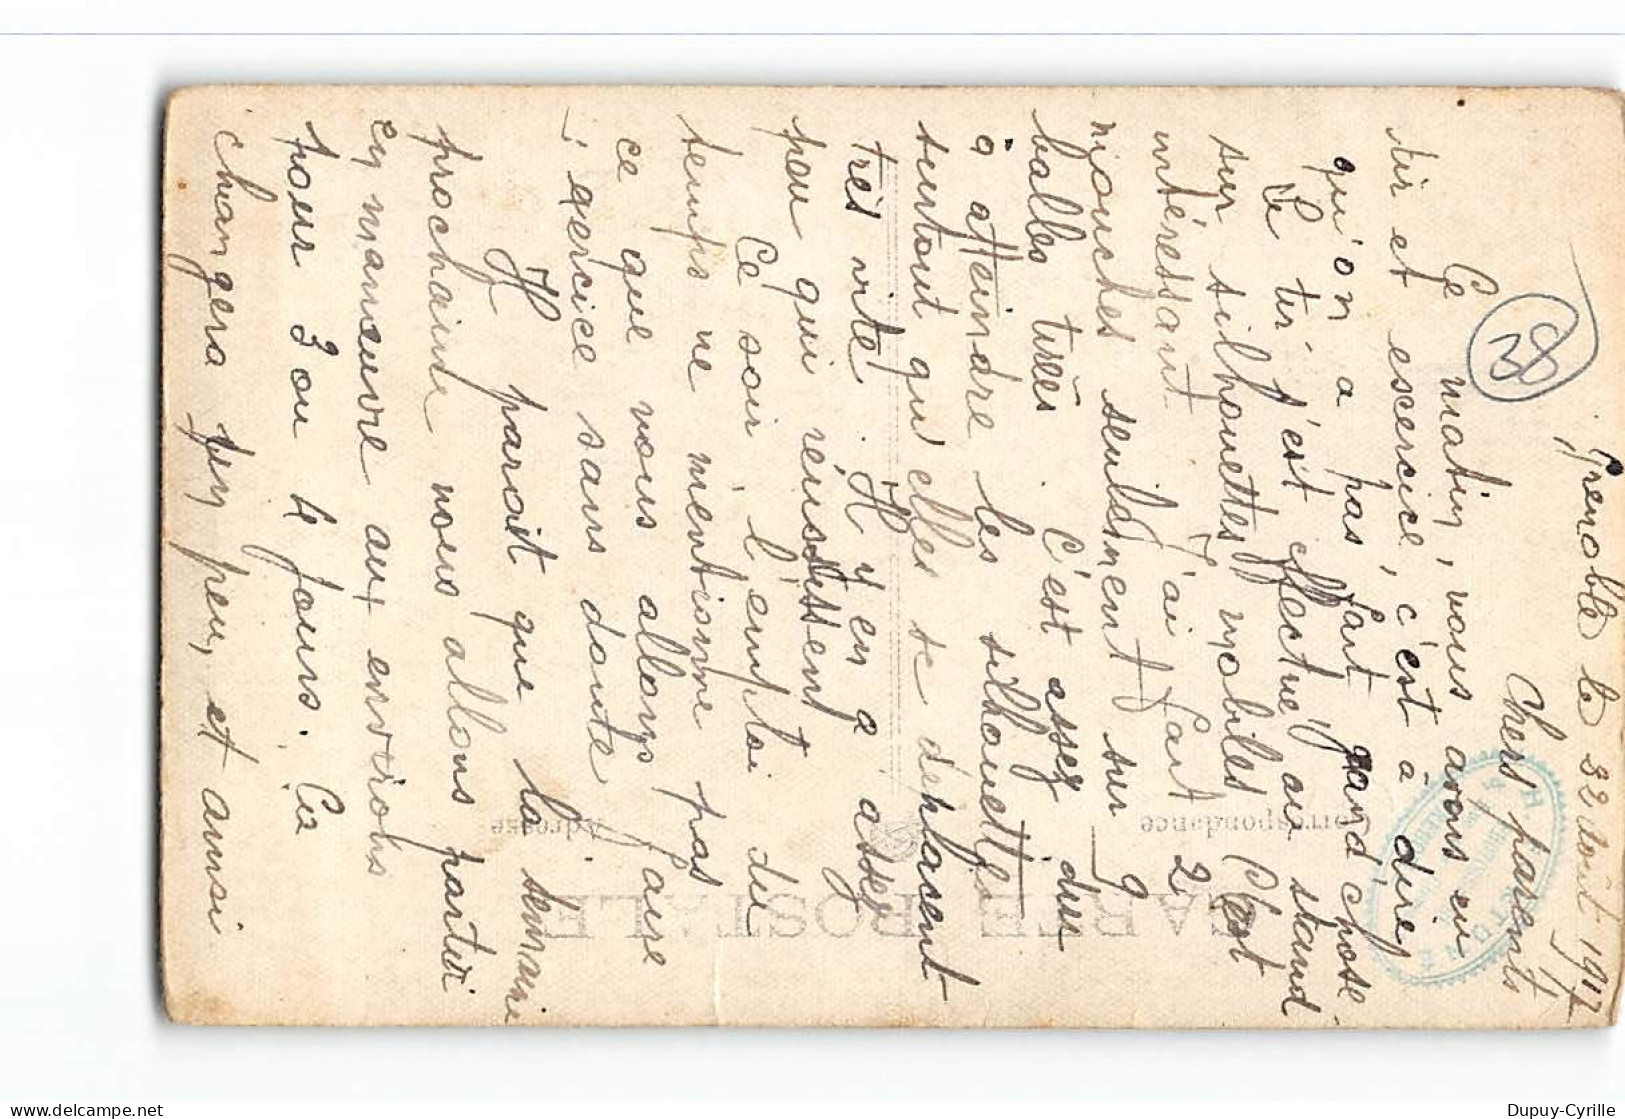 Grenoble le 22 août 1917
Chers parents
Ce matin, nous avons eu
tir et escercice, c'est à dire
qu'on a pas fait grand'chose.
Le tir s'est effectué au stand
sur silhouettes mobiles C'est
intéressant. J'ai fait 2
mouches seulement sur 9
balles tirées. C'est assez dur
à atteindre les silhouettes
surtout qu'elles se déplacent
très vite. Il y en a assez
peu qui réussissent
Ce soir l'emploi du
temps ne mentionne pas
ce que nous allons faire
; exercice sans doute
Il parait que la semaine
prochaine nous allons partir
en manœuvre aux environs
pour 3 ou 4 jours. Ca
changera un peu, et ainsi
28
CARTE POSTALE
Correspondance
Adresse
delcampe.net
Dupuy-Cyrille